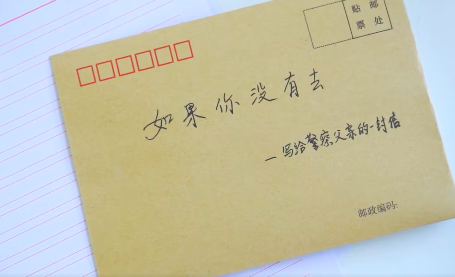 贴 邮
票 处
如果你没有去
—写给警察父亲的一封信
邮政编码: